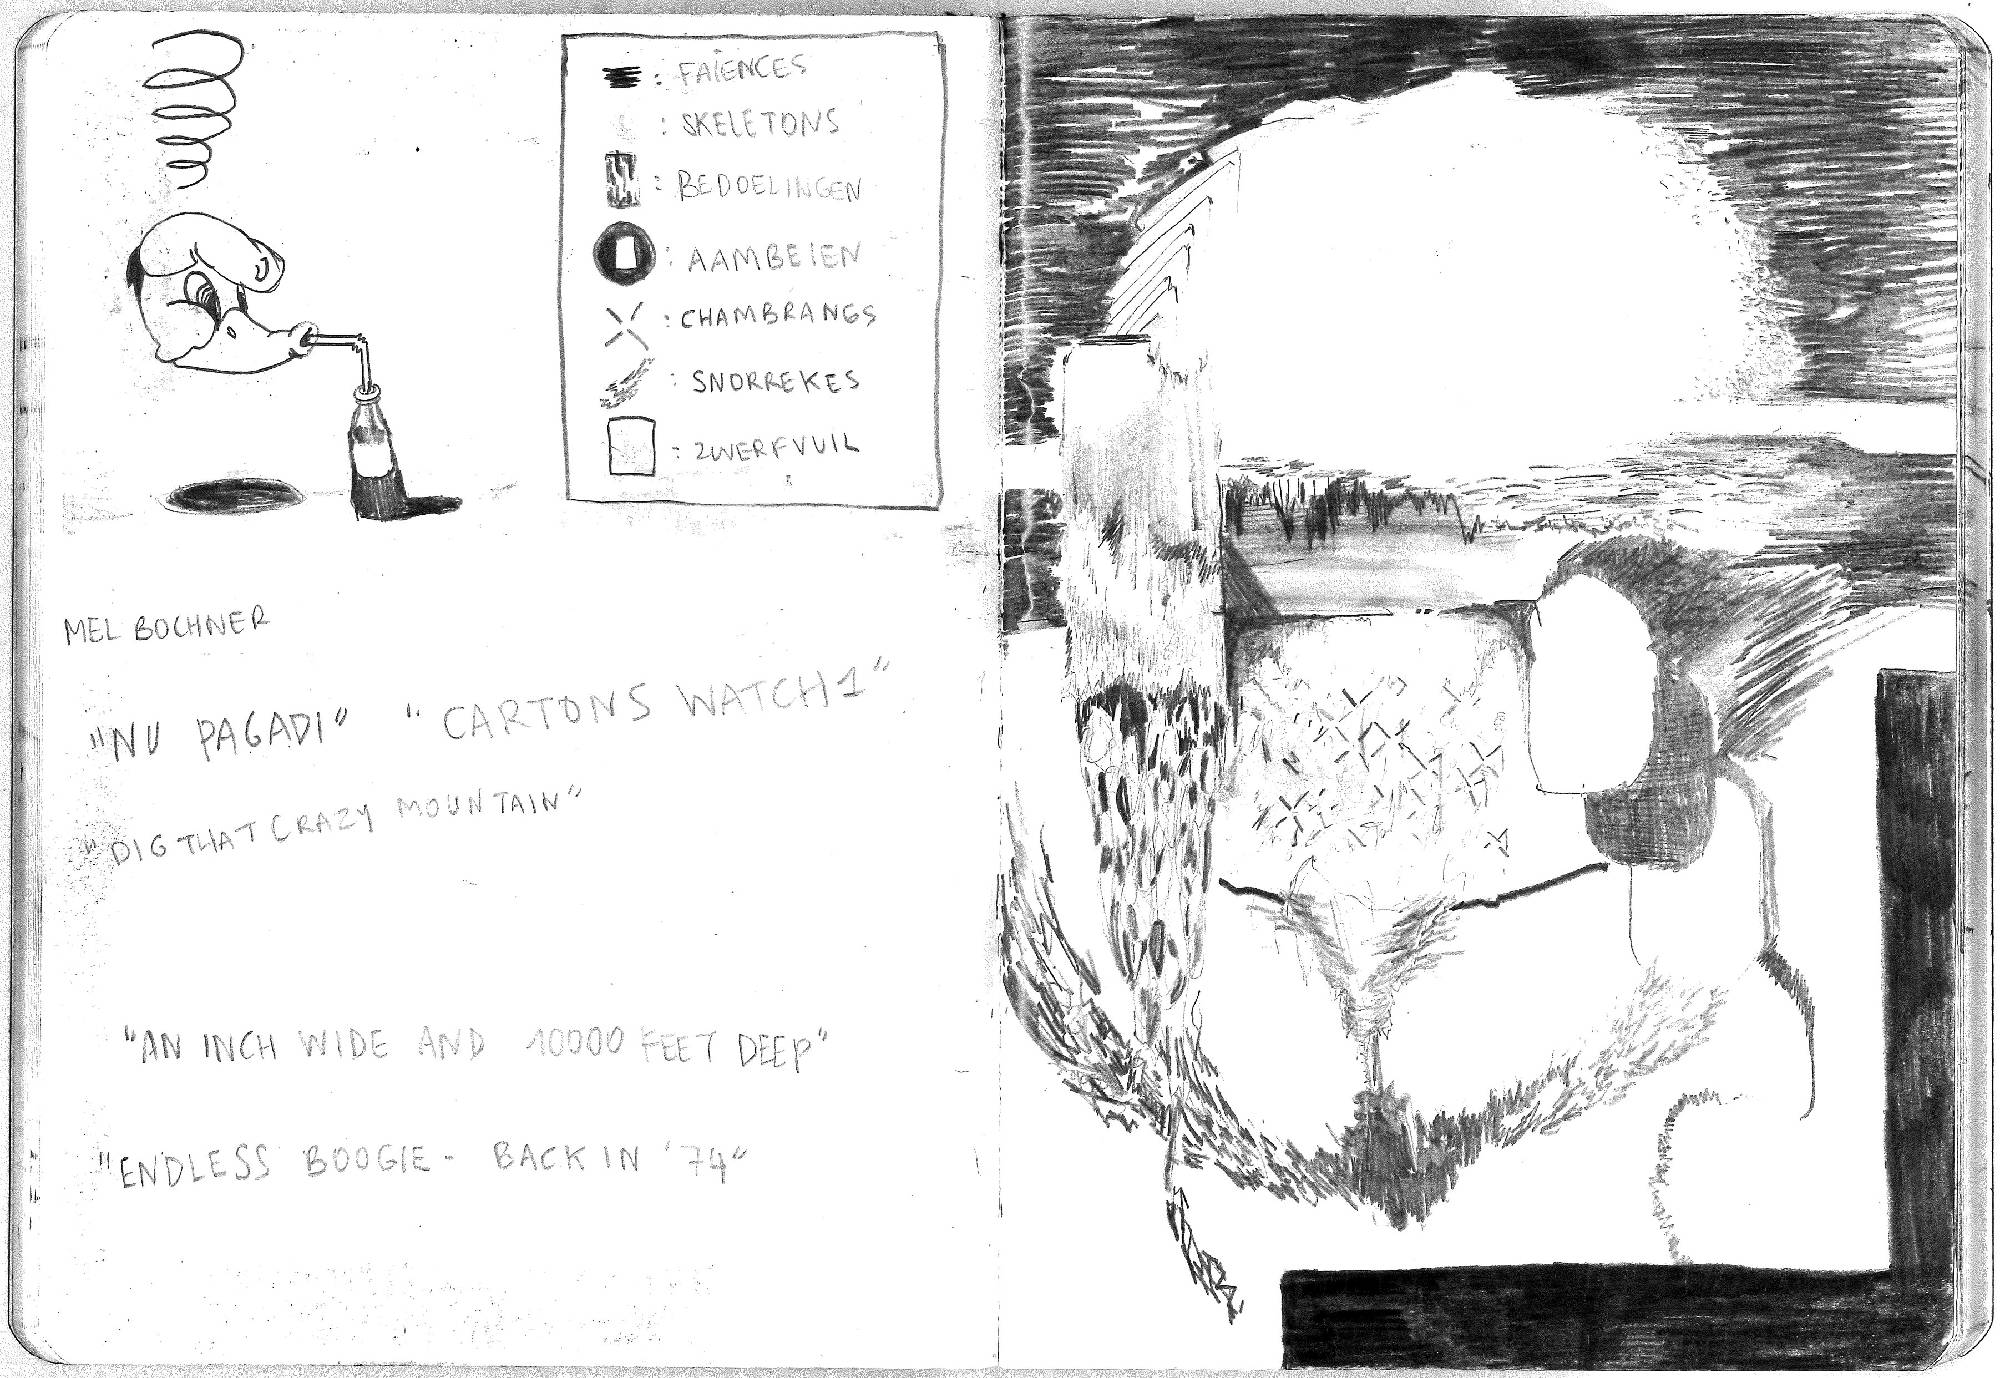 : FAÏENCES
: SKELETONS
: BEDOELINGEN
: AAMBEIEN
: CHAMBRANGS
: SNORREKES
: ZWERFVUIL
MEL BOCHNER
"NU PAGADI" "CARTONS WATCH1"
"DIG THAT CRAZY MOUNTAIN"
"AN INCH WIDE AND 10000 FEET DEEP"
"ENDLESS BOOGIE - BACK IN '74"